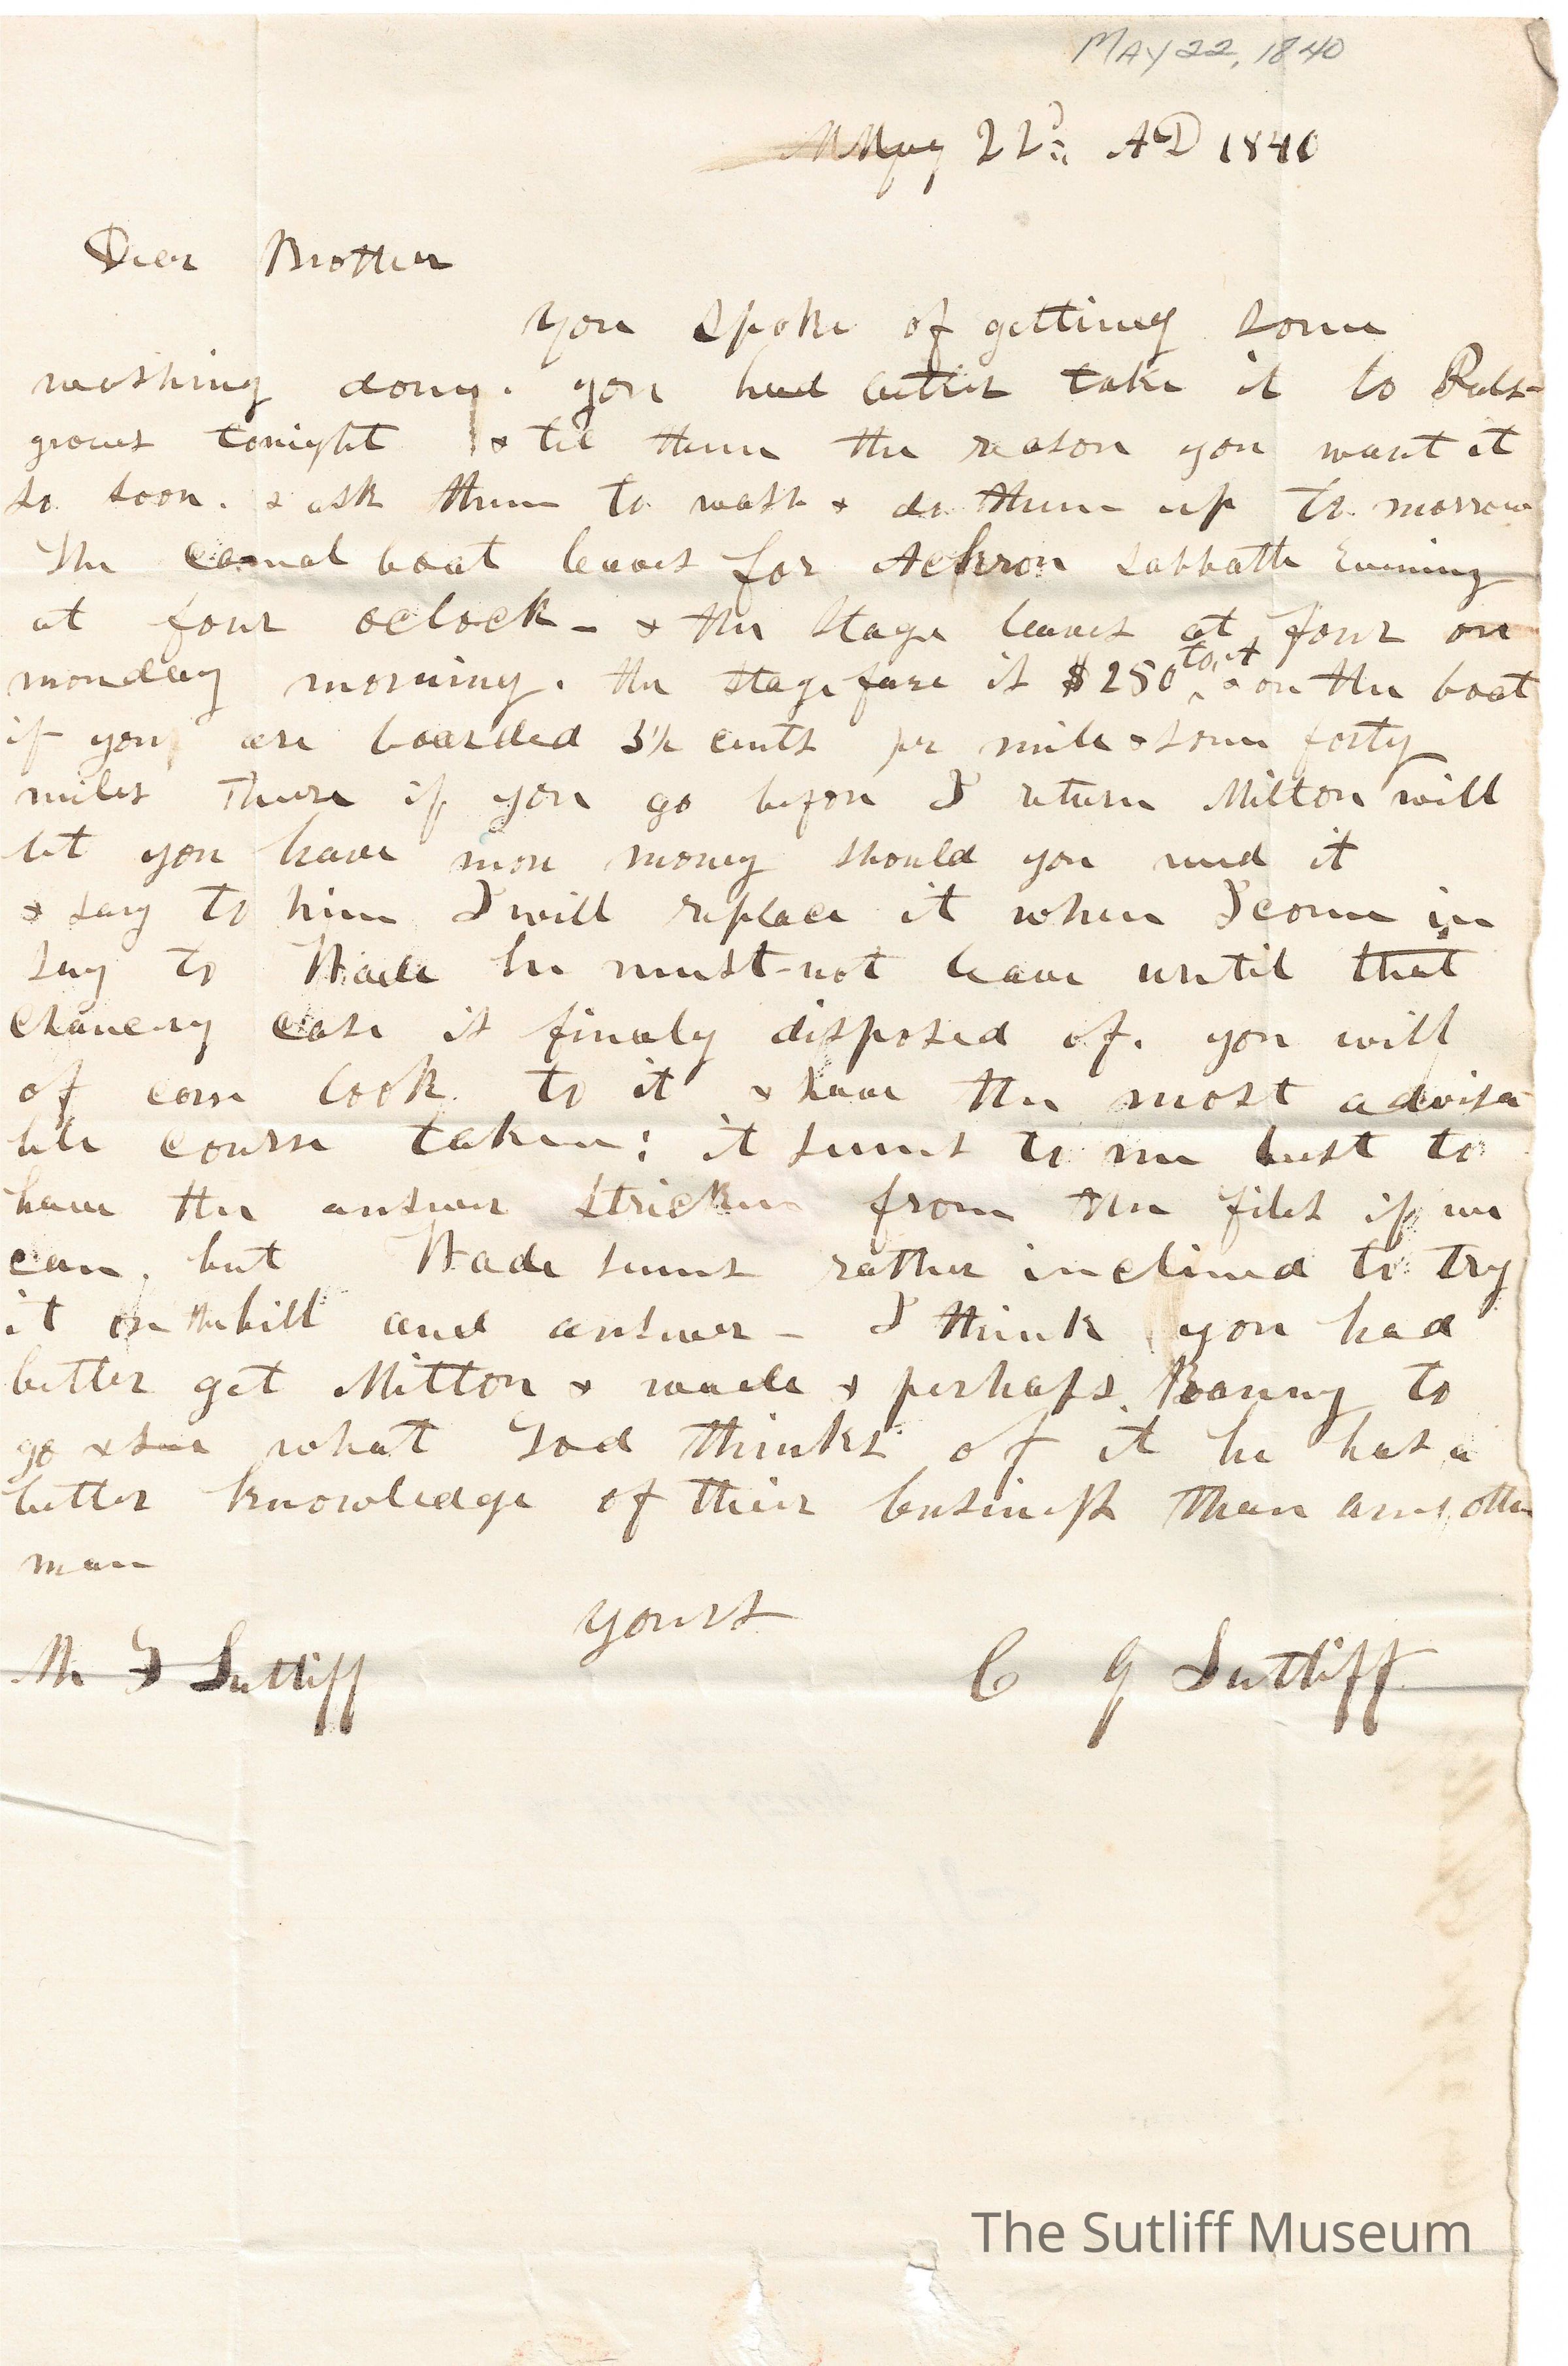 MAY 22, 1840
May 22d AD 1840
Dear Brother
you spoke of getting some
washing done. you had better take it to
groves tonight & tel them the reason you want it
so soon. & ask them to wash & do them up to morrow
The canal boat leaves for Ackron Sabbath Evening
at four oclock - & the Stage leaves at four on
monday morning. the Stage fare is $250 & on the boat
if you are boarded 3½ cents pr mile & some forty
miles There if you go before I return Milton will
let you have more money should you need it
& say to him I will replace it when I come in
Say to Wade he must not leave until that
Chancery case is finaly disposed of. you will
of corse look to it & have the most advisa
ble course taken; it seems to me best to
have the answer stricken from the files if we
can, but Wade seems rather inclined to try
it on the bill and answer - I think you had
better get Milton & wade & perhaps to
go & see what Tod thinks of it he has a
better knowledge of their business than any other
man
yours
Sutliff
C G Sutliff
The Sutliff Museum